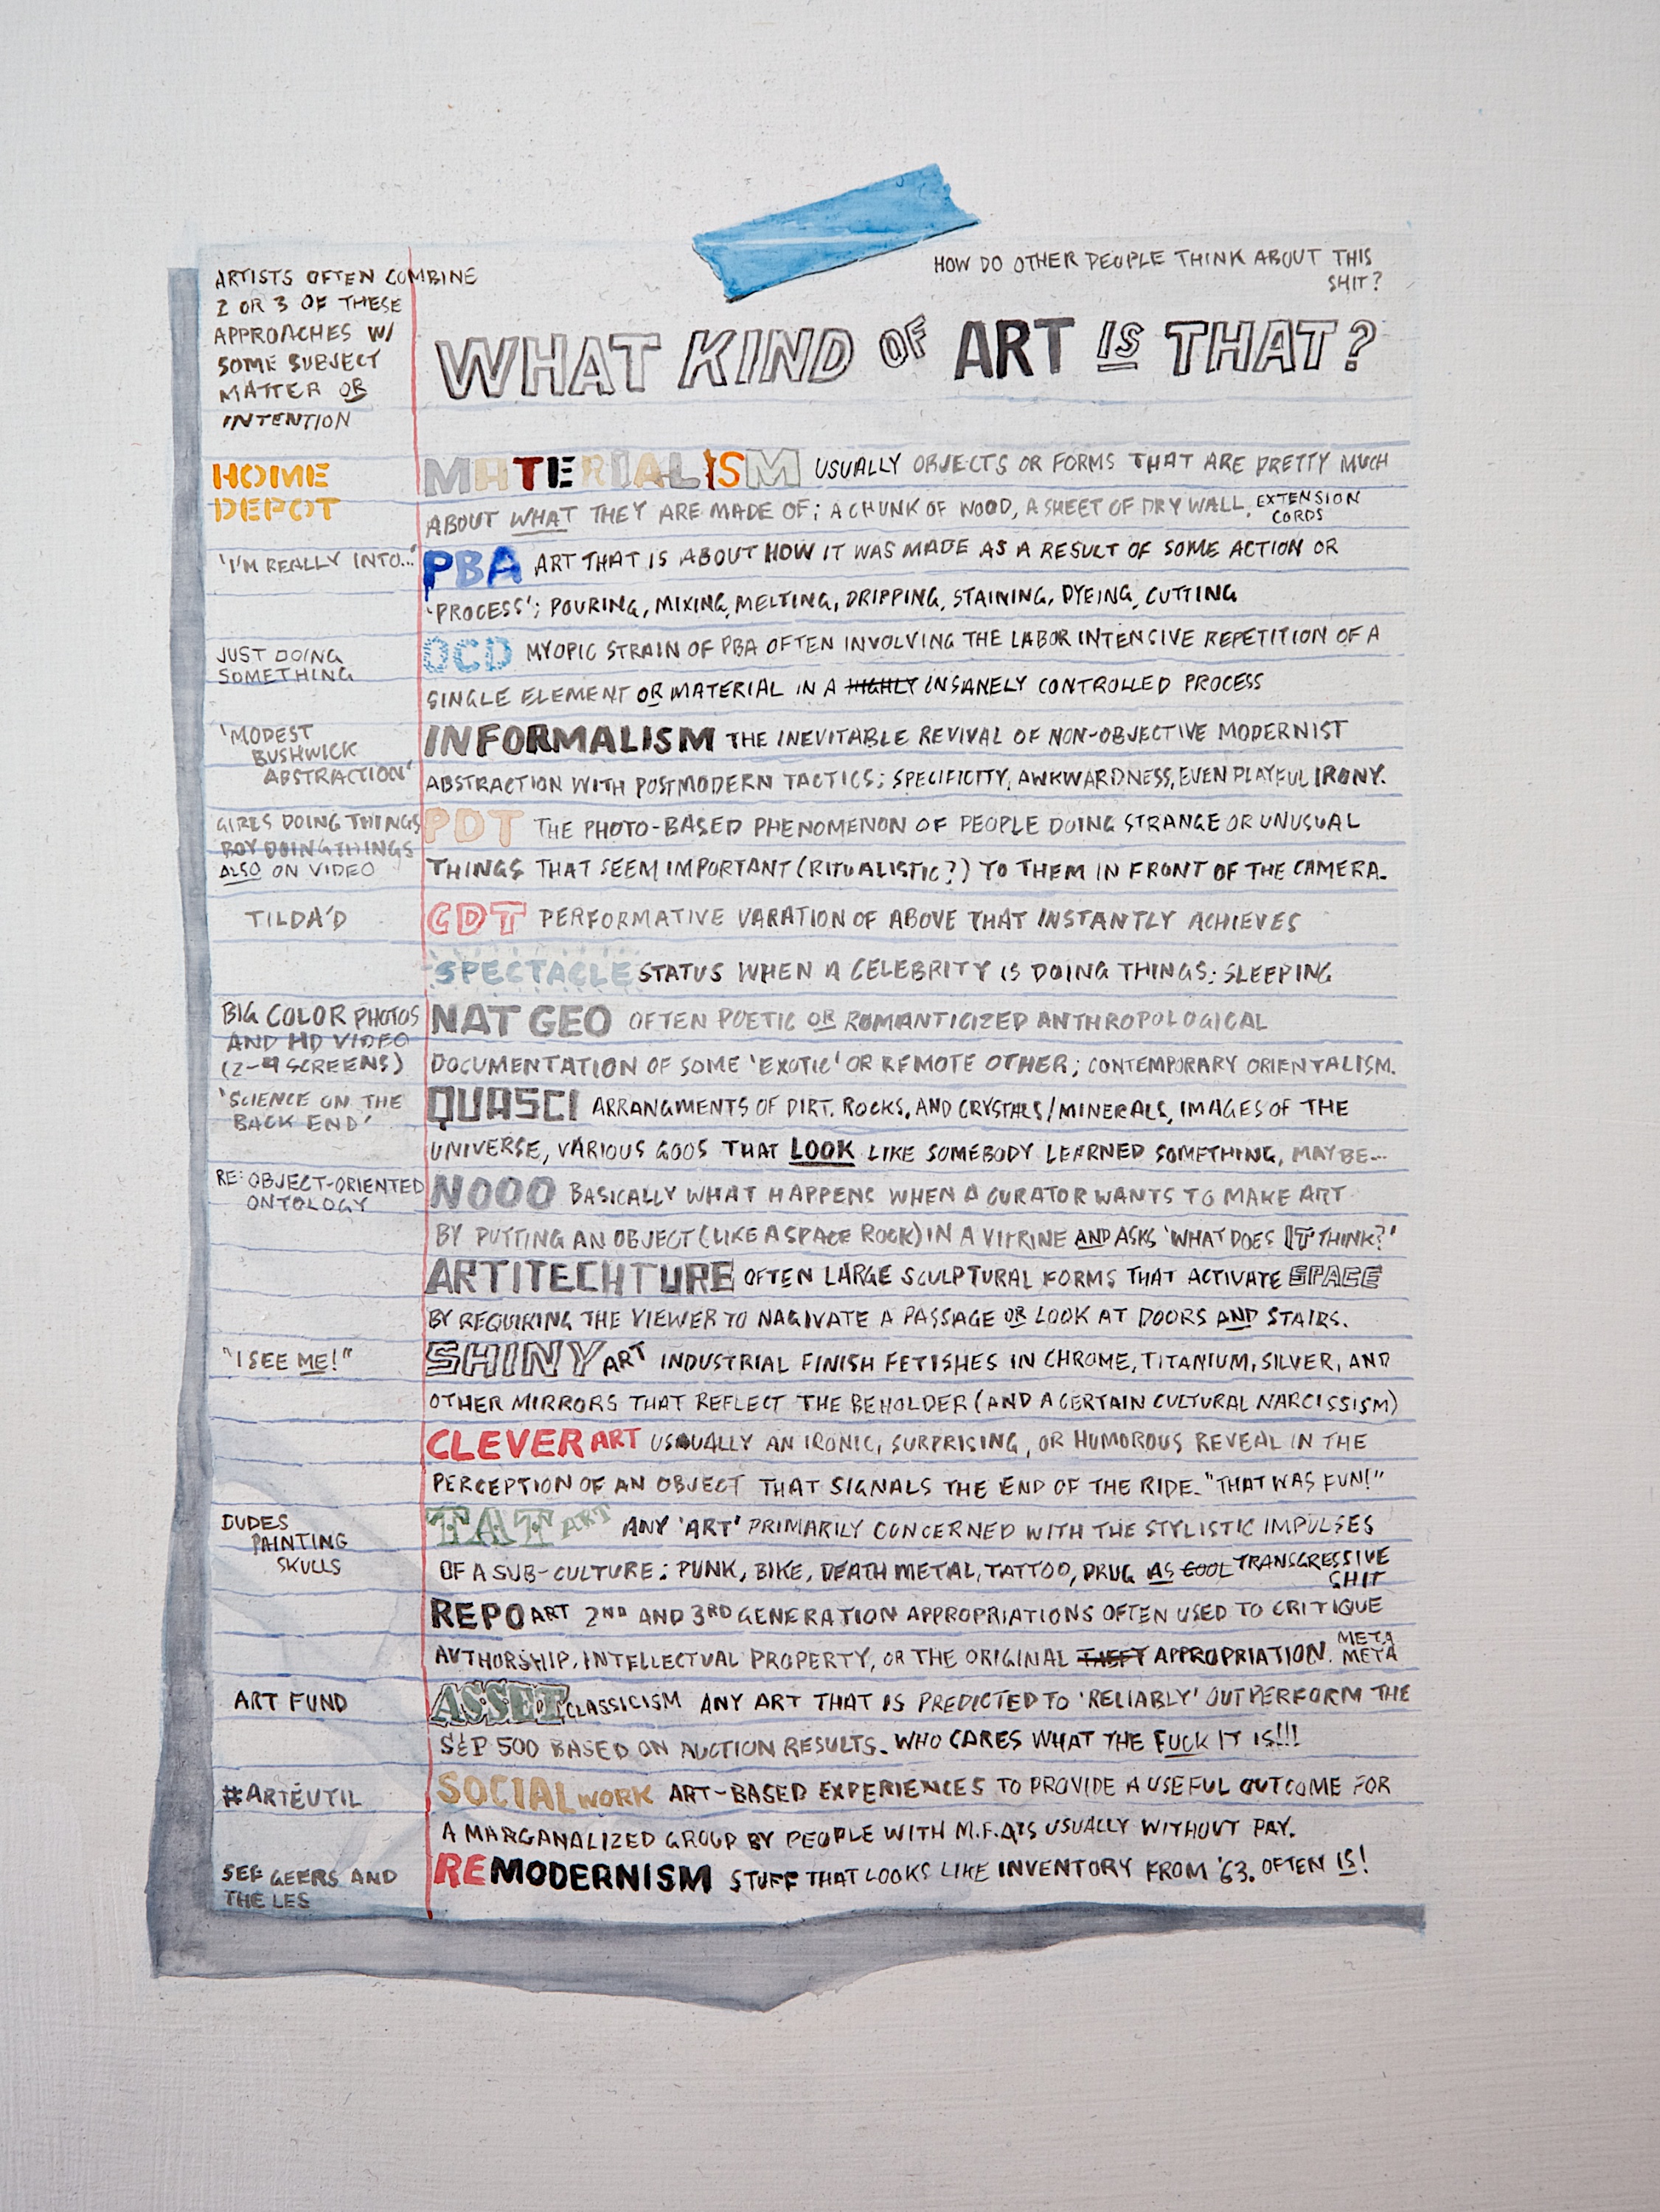 HOW DO OTHER PEOPLE THINK ABOUT THIS
SHIT?
ARTISTS OFTEN COMBINE
2 OR 3 OF THESE
APPROACHES W/
SOME SUBJECT
MATTER OR
INTENTION
WHAT KIND OF ART IS THAT?
HOME
DEPOT
MATERIALISM USUALLY OBJECTS OR FORMS THAT ARE PRETTY MUCH
ABOUT WHAT THEY ARE MADE OF; A CHUNK OF WOOD, A SHEET OF DRY WALL, EXTENSION
CORDS
'I'M REALLY INTO...'
PBA ART THAT IS ABOUT HOW IT WAS MADE AS A RESULT OF SOME ACTION OR
'PROCESS'; POURING, MIXING, MELTING, DRIPPING, STAINING, DYEING, CUTTING
JUST DOING
SOMETHING
OCD MYOPIC STRAIN OF PBA OFTEN INVOLVING THE LABOR INTENSIVE REPETITION OF A
SINGLE ELEMENT OR MATERIAL IN A HIGHLY INSANELY CONTROLLED PROCESS
'MODEST
BUSHWICK
ABSTRACTION'
INFORMALISM THE INEVITABLE REVIVAL OF NON-OBJECTIVE MODERNIST
ABSTRACTION WITH POSTMODERN TACTICS; SPECIFICITY, AWKWARDNESS, EVEN PLAYFUL IRONY.
GIRLS DOING THINGS
BOY DOING THINGS
ALSO ON VIDEO
PDT THE PHOTO-BASED PHENOMENON OF PEOPLE DOING STRANGE OR UNUSUAL
THINGS THAT SEEM IMPORTANT (RITUALISTIC?) TO THEM IN FRONT OF THE CAMERA.
TILDA'D
CDT PERFORMATIVE VARATION OF ABOVE THAT INSTANTLY ACHIEVES
SPECTACLE STATUS WHEN A CELEBRITY IS DOING THINGS: SLEEPING
BIG COLOR PHOTOS
AND HD VIDEO
(2-4 SCREENS)
NAT GEO OFTEN POETIC OR ROMANTICIZED ANTHROPOLOGICAL
DOCUMENTATION OF SOME 'EXOTIC' OR REMOTE OTHER; CONTEMPORARY ORIENTALISM.
'SCIENCE ON THE
BACK END'
QUASCI ARRANGMENTS OF DIRT, ROCKS, AND CRYSTALS/MINERALS, IMAGES OF THE
UNIVERSE, VARIOUS GOOS THAT LOOK LIKE SOMEBODY LEARNED SOMETHING, MAYBE...
RE: OBJECT-ORIENTED
ONTOLOGY
NOOO BASICALLY WHAT HAPPENS WHEN A CURATOR WANTS TO MAKE ART
BY PUTTING AN OBJECT (LIKE A SPACE ROCK) IN A VITRINE AND ASKS 'WHAT DOES IT THINK?'
ARTITECHTURE OFTEN LARGE SCULPTURAL FORMS THAT ACTIVATE SPACE
BY REQUIRING THE VIEWER TO NAGIVATE A PASSAGE OR LOOK AT DOORS AND STAIRS.
"I SEE ME!"
SHINY ART INDUSTRIAL FINISH FETISHES IN CHROME, TITANIUM, SILVER, AND
OTHER MIRRORS THAT REFLECT THE BEHOLDER (AND A CERTAIN CULTURAL NARCISSISM)
CLEVER ART USUALLY AN IRONIC, SURPRISING, OR HUMOROUS REVEAL IN THE
PERCEPTION OF AN OBJECT THAT SIGNALS THE END OF THE RIDE. "THAT WAS FUN!"
DUDES
PAINTING
SKULLS
TAT ART ANY 'ART' PRIMARILY CONCERNED WITH THE STYLISTIC IMPULSES
OF A SUB-CULTURE: PUNK, BIKE, DEATH METAL, TATTOO, DRUG AS COOL TRANSGRESSIVE
SHIT
REPO ART 2ND AND 3RD GENERATION APPROPRIATIONS OFTEN USED TO CRITIQUE
AUTHORSHIP, INTELLECTUAL PROPERTY, OR THE ORIGINAL THEFT APPROPRIATION. META
META
ART FUND
ASSET CLASSICISM ANY ART THAT IS PREDICTED TO 'RELIABLY' OUTPERFORM THE
S&P 500 BASED ON AUCTION RESULTS. WHO CARES WHAT THE FUCK IT IS!!!
#ARTÉUTIL
SOCIAL WORK ART-BASED EXPERIENCES TO PROVIDE A USEFUL OUTCOME FOR
A MARGANALIZED GROUP BY PEOPLE WITH M.F.A'S USUALLY WITHOUT PAY.
SEE GEERS AND
THE LES
REMODERNISM STUFF THAT LOOKS LIKE INVENTORY FROM '63. OFTEN IS!